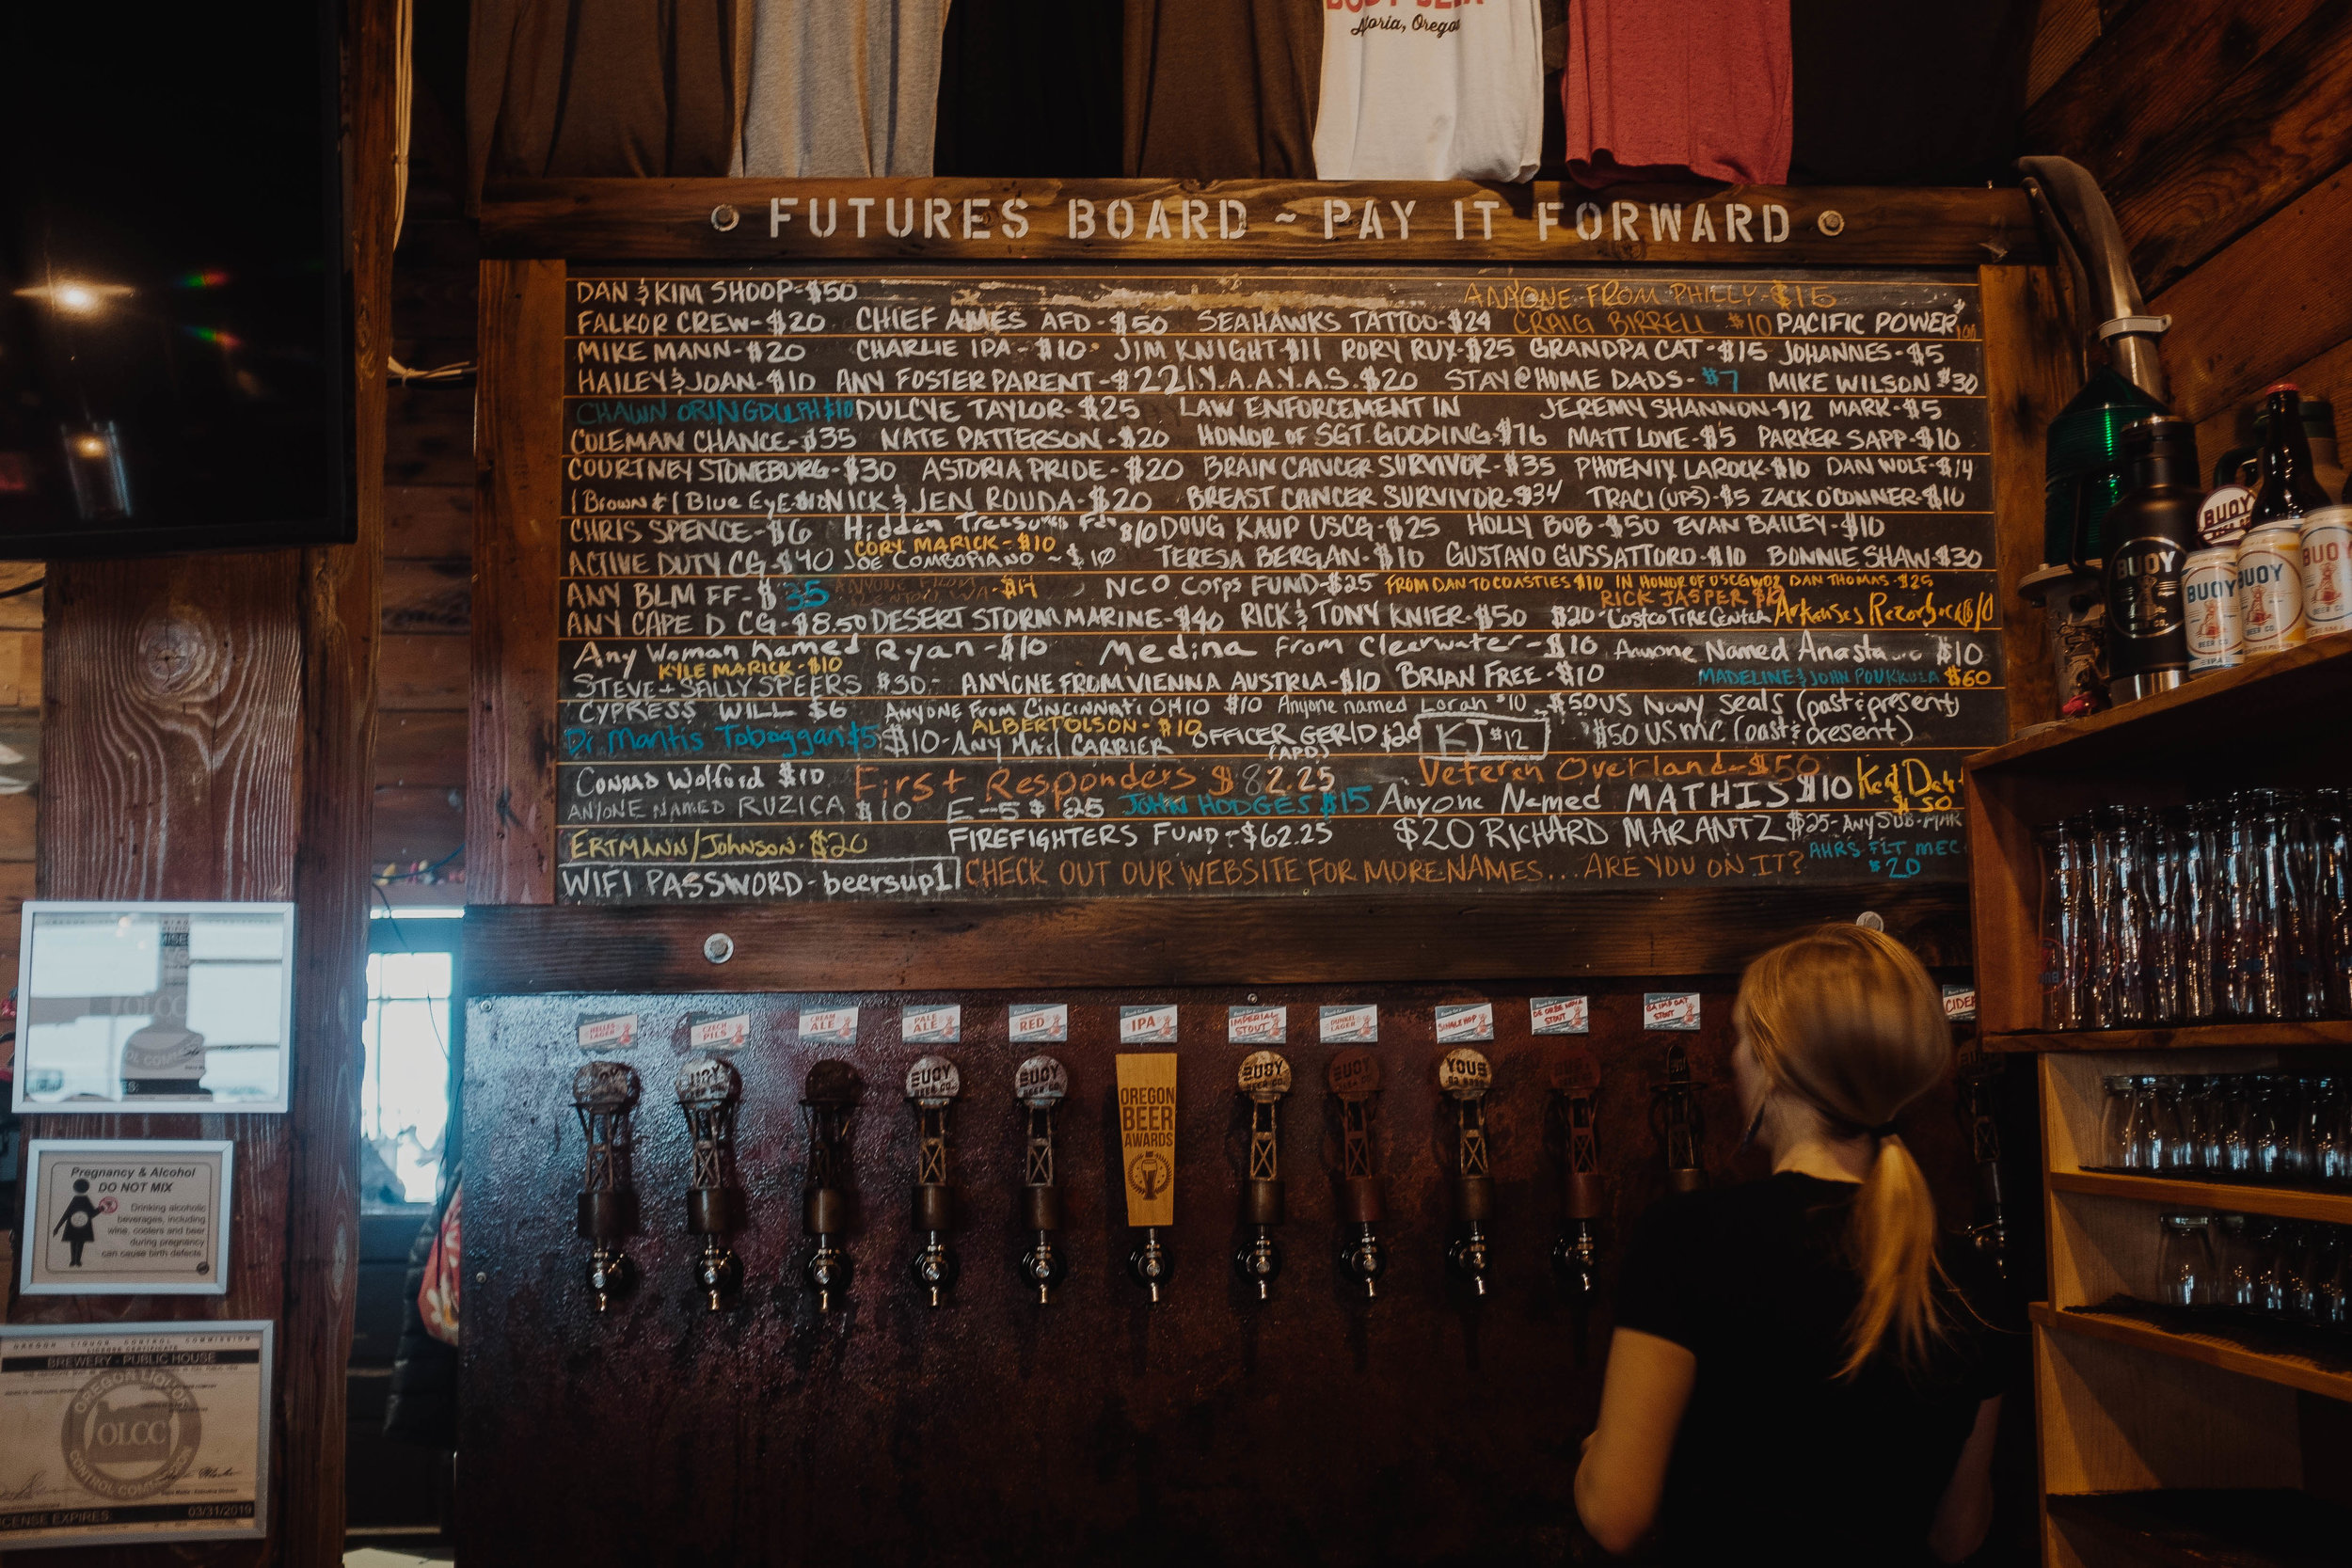 Astoria, Oregon
FUTURES BOARD ~ PAY IT FORWARD
DAN & KIM SHOOP-$50 ANYONE FROM PHILLY-$15
FALKOR CREW-$20 CHIEF AMES AFD-$50 SEAHAWKS TATTOO-$24 CRAIG BIRRELL $10 PACIFIC POWER
MIKE MANN-$20 CHARLIE IPA-$10 JIM KNIGHT-$11 RORY RUX-$25 GRANDPA CAT-$15 JOHANNES-$5
HAILEY & JOAN-$10 ANY FOSTER PARENT-$22 I.Y.A.A.Y.A.S.$20 STAY@HOME DADS-$7 MIKE WILSON $30
CHAWN ORINGDULPH $10 DULCYE TAYLOR-$25 LAW ENFORCEMENT IN JEREMY SHANNON-$12 MARK-$5
COLEMAN CHANCE-$35 NATE PATTERSON-$20 HONOR OF SGT. GOODING-$76 MATT LOVE-$5 PARKER SAPP-$10
COURTNEY STONEBURG-$30 ASTORIA PRIDE-$20 BRAIN CANCER SURVIVOR-$35 PHOENIX LAROCK-$10 DAN WOLF-$14
1 Brown & 1 Blue Eye-$10 NICK & JEN ROUDA-$20 BREAST CANCER SURVIVOR-$34 TRACI (UPS)-$5 ZACK O'CONNER-$10
CHRIS SPENCE-$6 Hidden Treasures $10 DOUG KAUP USCG-$25 HOLLY BOB-$50 EVAN BAILEY-$10
CORY MARICK-$10
ACTIVE DUTY CG-$40 JOE COMBOPIANO ~ $10 TERESA BERGLAN-$10 GUSTAVO GUSSATTORD-$10 BONNIE SHAW-$30
ANY BLM FF-$35 ANYONE FROM WA-$14 NCO Corps FUND-$25 FROM DAN TO COASTIES $10 IN HONOR OF USCG DAN THOMAS-$25
RICK JASPER
ANY CAPE D CG-$8.50 DESERT STORM MARINE-$40 RICK & TONY KNIER-$50 $20-Costco Tire Center Arkansas $10
Any Woman Named Ryan-$10 Medina From Clearwater-$10 Anyone Named $10
KYLE MARICK-$10
STEVE+SALLY SPEERS $30- ANYONE FROM VIENNA AUSTRIA-$10 BRIAN FREE-$10 MADELINE & JOHN POUKKULA $60
CYPRESS WILL $6 ANYONE FROM CINCINNATI OHIO $10 Anyone named Lorah $10 $50 US Navy Seals (past & present)
ALBERT OLSON-$10
Dr. Mantis Toboggan $5 $10-ANY MAIL CARRIER OFFICER GERID $20 KJ $12 $50 USMC (past & present)
(APD)
CONRAD Wolford $10 First Responders $82.25 Veteran Overland-$50
ANYONE NAMED RUZICA $10 E-5 $25 JOHN HODGES $15 Anyone Named MATHIS $10
$50
ERTMANN/Johnson-$20 FIREFIGHTERS FUND-$62.25 $20 RICHARD MARANTZ $25-ANY SUB-
AHRS FLT MEC
$20
WIFI PASSWORD-beersup1 CHECK OUT OUR WEBSITE FOR MORE NAMES... ARE YOU ON IT?
HELLES LAGER
CZECH PILS
CREAM ALE
PALE ALE
RED
IPA
IMPERIAL STOUT
DUNKEL LAGER
SINGLE HOP
STOUT
STOUT
CIDER
BUOY
BUOY BEER CO.
BUOY BEER CO.
OREGON BEER AWARDS
BUOY BEER CO.
BUOY
BUOY
BUOY
BUOY
BEER CO.
BUOY
BEER CO.
BUOY
BEER CO.
OLCC
Pregnancy & Alcohol
DO NOT MIX
Drinking alcoholic
beverages, including
wine, coolers and beer
during pregnancy
can cause birth defects.
OREGON LIQUOR CONTROL COMMISSION
LICENSE CERTIFICATE
BREWERY - PUBLIC HOUSE
OREGON LIQUOR CONTROL COMMISSION
OLCC
LICENSE EXPIRES: 03/31/2019